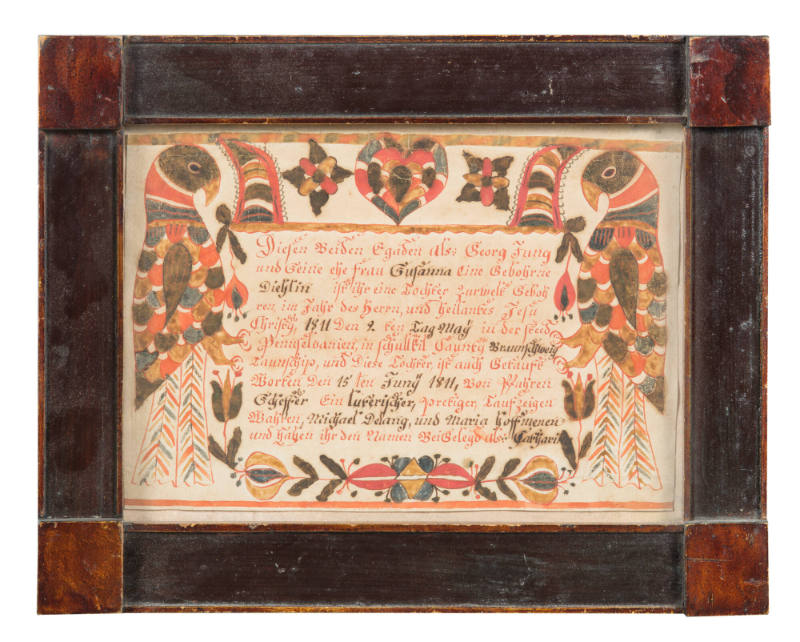 Diesen Beiden Egaden als: Georg Jung
und Seine ehe frau Susanna Eine Gebohrne
Diehlin ist ihr eine Tochter Zurwelt Geboh
ren im Jahr des Herrn, und heilandes Jesu
Christy, 1811 Den 2. ten Tag May in der
Pennselvanien, in schulkil Caunty Braunschweig
Taunschip, und Diese Tochter, ist auch Getauft
Worten Den 15 ten Juny 1811, Von Pfahren
Scheffer Ein luterischer, prediger, Taufzeigen
Wahren, Michael Delang, und Maria Hoffmenen
und haben ihr den Namen BeiGelegd als: